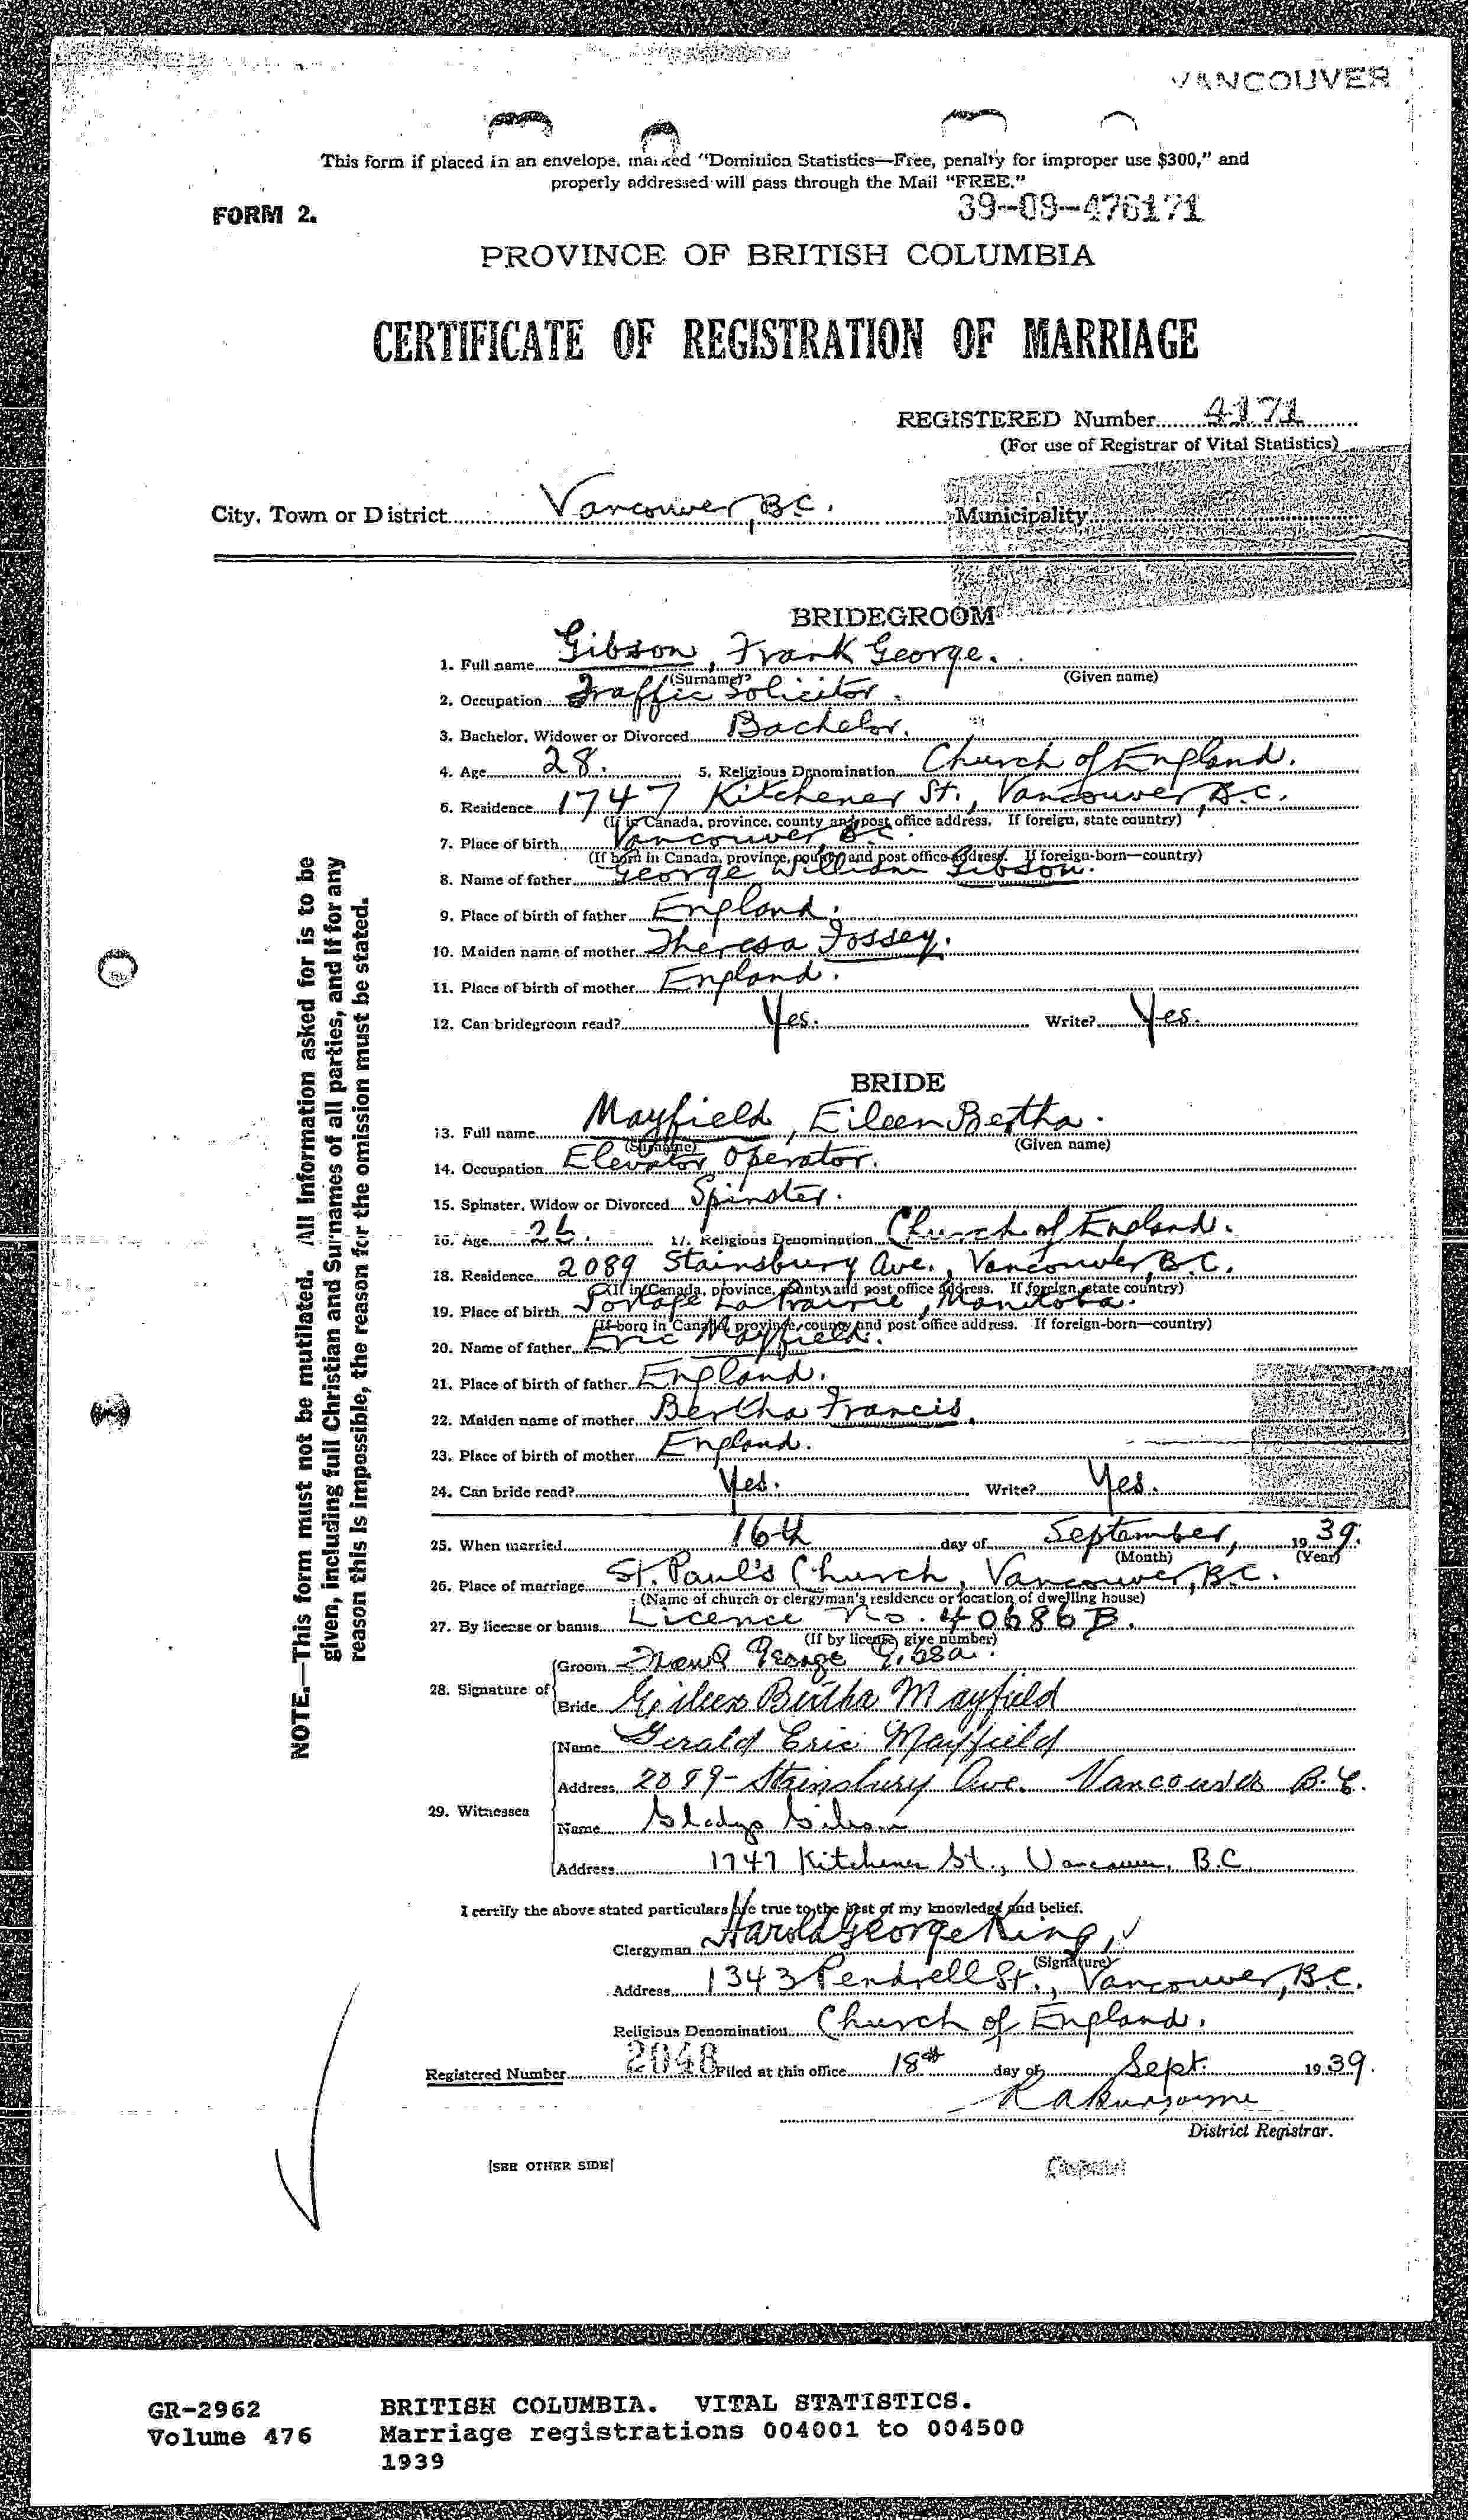 VANCOUVER
This form if placed in an envelope, marked "Dominion Statistics—Free, penalty for improper use $300," and
properly addressed will pass through the Mail "FREE."
FORM 2.
39-09-476171
PROVINCE OF BRITISH COLUMBIA
CERTIFICATE OF REGISTRATION OF MARRIAGE
REGISTERED Number 4171
(For use of Registrar of Vital Statistics)
City, Town or District Vancouver, B.C. Municipality
NOTE.—This form must not be mutilated. All Information asked for is to be
given, including full Christian and Surnames of all parties, and if for any
reason this is impossible, the reason for the omission must be stated.
BRIDEGROOM
1. Full name Gibson, Frank George.
(Surname) (Given name)
2. Occupation Traffic Solicitor.
3. Bachelor, Widower or Divorced Bachelor.
4. Age 28. 5. Religious Denomination Church of England.
6. Residence 1747 Kitchener St., Vancouver, B.C.
(If in Canada, province, county and post office address. If foreign, state country)
7. Place of birth Vancouver, B.C.
(If born in Canada, province, county and post office address. If foreign-born—country)
8. Name of father George William Gibson.
9. Place of birth of father England.
10. Maiden name of mother Theresa Fossey.
11. Place of birth of mother England.
12. Can bridegroom read? Yes. Write? Yes.
BRIDE
13. Full name Mayfield, Eileen Bertha.
(Surname) (Given name)
14. Occupation Elevator Operator.
15. Spinster, Widow or Divorced Spinster.
16. Age 17. Religious Denomination Church of England.
18. Residence 2089 Stainsbury Ave., Vancouver, B.C.
(If in Canada, province, county and post office address. If foreign, state country)
19. Place of birth Portage La Prairie, Manitoba.
(If born in Canada, province, county and post office address. If foreign-born—country)
20. Name of father Eric Mayfield.
21. Place of birth of father England.
22. Maiden name of mother Bertha Francis.
23. Place of birth of mother England.
24. Can bride read? Yes. Write? Yes.
25. When married 16th day of September, 1939.
(Month) (Year)
26. Place of marriage St. Paul's Church, Vancouver, B.C.
(Name of church or clergyman's residence or location of dwelling house)
27. By license or banns Licence No. 40686B.
(If by license, give number)
28. Signature of
Groom Frank George Gibson.
Bride Eileen Bertha Mayfield
29. Witnesses
Name Gerald Eric Mayfield
Address 2089 - Stainsbury Ave. Vancouver B.C.
Name Gladys Gibson
Address 1747 Kitchener St., Vancouver, B.C
I certify the above stated particulars are true to the best of my knowledge and belief.
Clergyman Harold George King,
(Signature)
Address 1343 Pendrell St., Vancouver, B.C.
Religious Denomination Church of England.
Registered Number 2048 Filed at this office 18th day of Sept. 1939.
District Registrar.
[SEE OTHER SIDE]
GR-2962 BRITISH COLUMBIA. VITAL STATISTICS.
Volume 476 Marriage registrations 004001 to 004500
1939